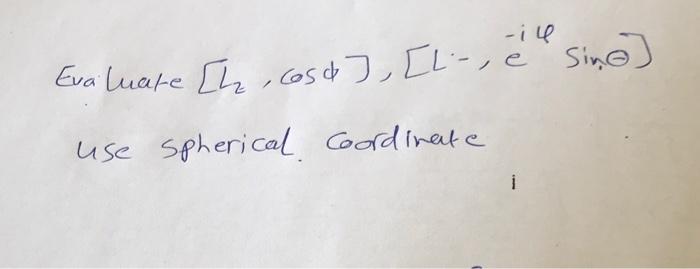 Evaluate [Lz, cosϕ], [L-, e^-iφ Sinθ]
use spherical Coordinate
i